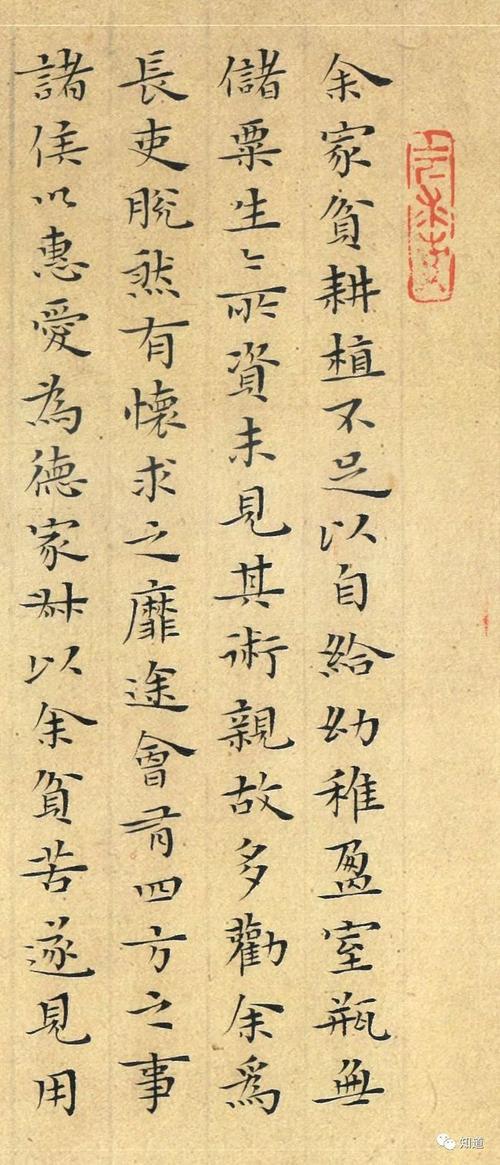 余家貧耕植不足以自給幼稚盈室瓶無
儲粟生〻所資未見其術親故多勸余爲
長吏脫然有懷求之靡途會有四方之事
諸侯以惠愛為德家叔以余貧苦遂見用
知道